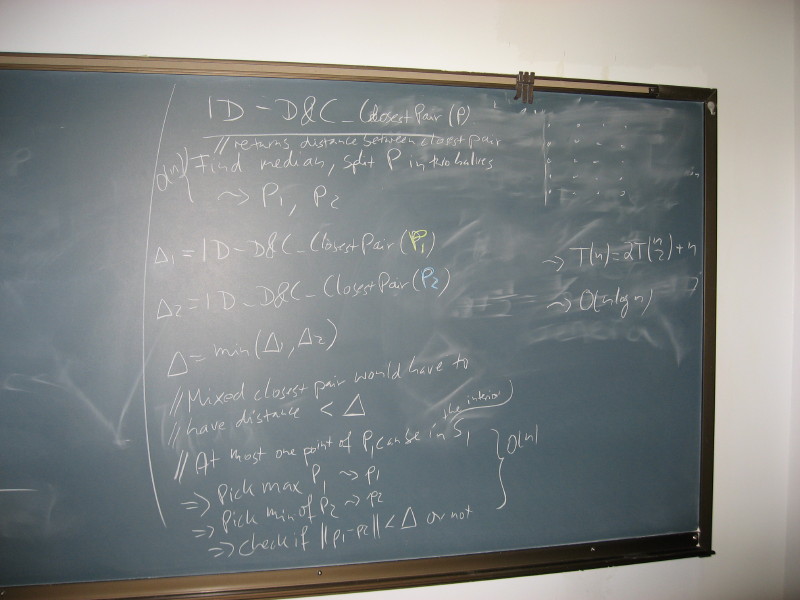 1D-D&C_ClosestPair(P)
// returns distance between closest pair
O(n) { Find median, split P in two halves
~> P₁, P₂
Δ₁ = 1D-D&C_ClosestPair(P₁)
Δ₂ = 1D-D&C_ClosestPair(P₂)
Δ = min(Δ₁, Δ₂)
// Mixed closest pair would have to
// have distance < Δ
the interior
// At most one point of P₁ can be in S₁
=> Pick max P₁ ~> p₁
=> Pick min of P₂ ~> p₂
=> Check if ||p₁-p₂|| < Δ or not
} O(n)
~> T(n) = 2T(n/2) + n
~> O(n log n)